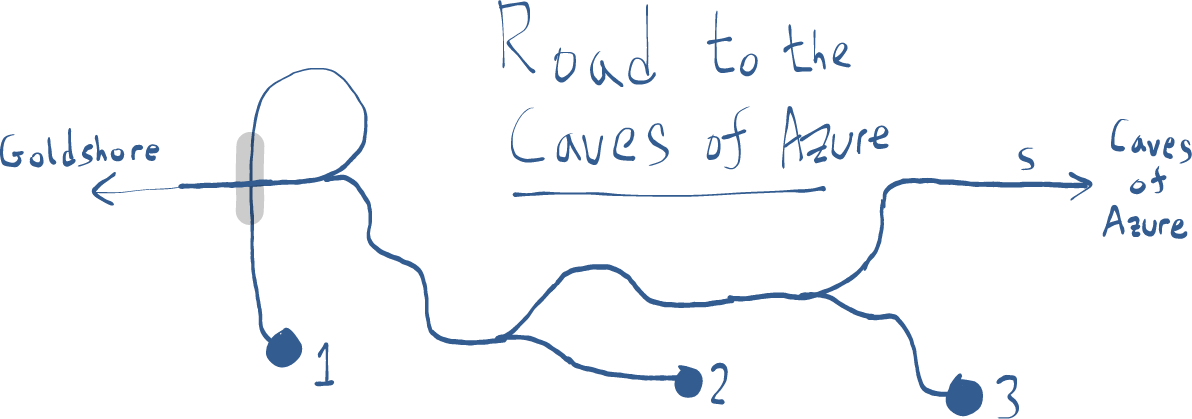 Road to the
Caves of Azure
Goldshore
S
Caves
of
Azure
1
2
3